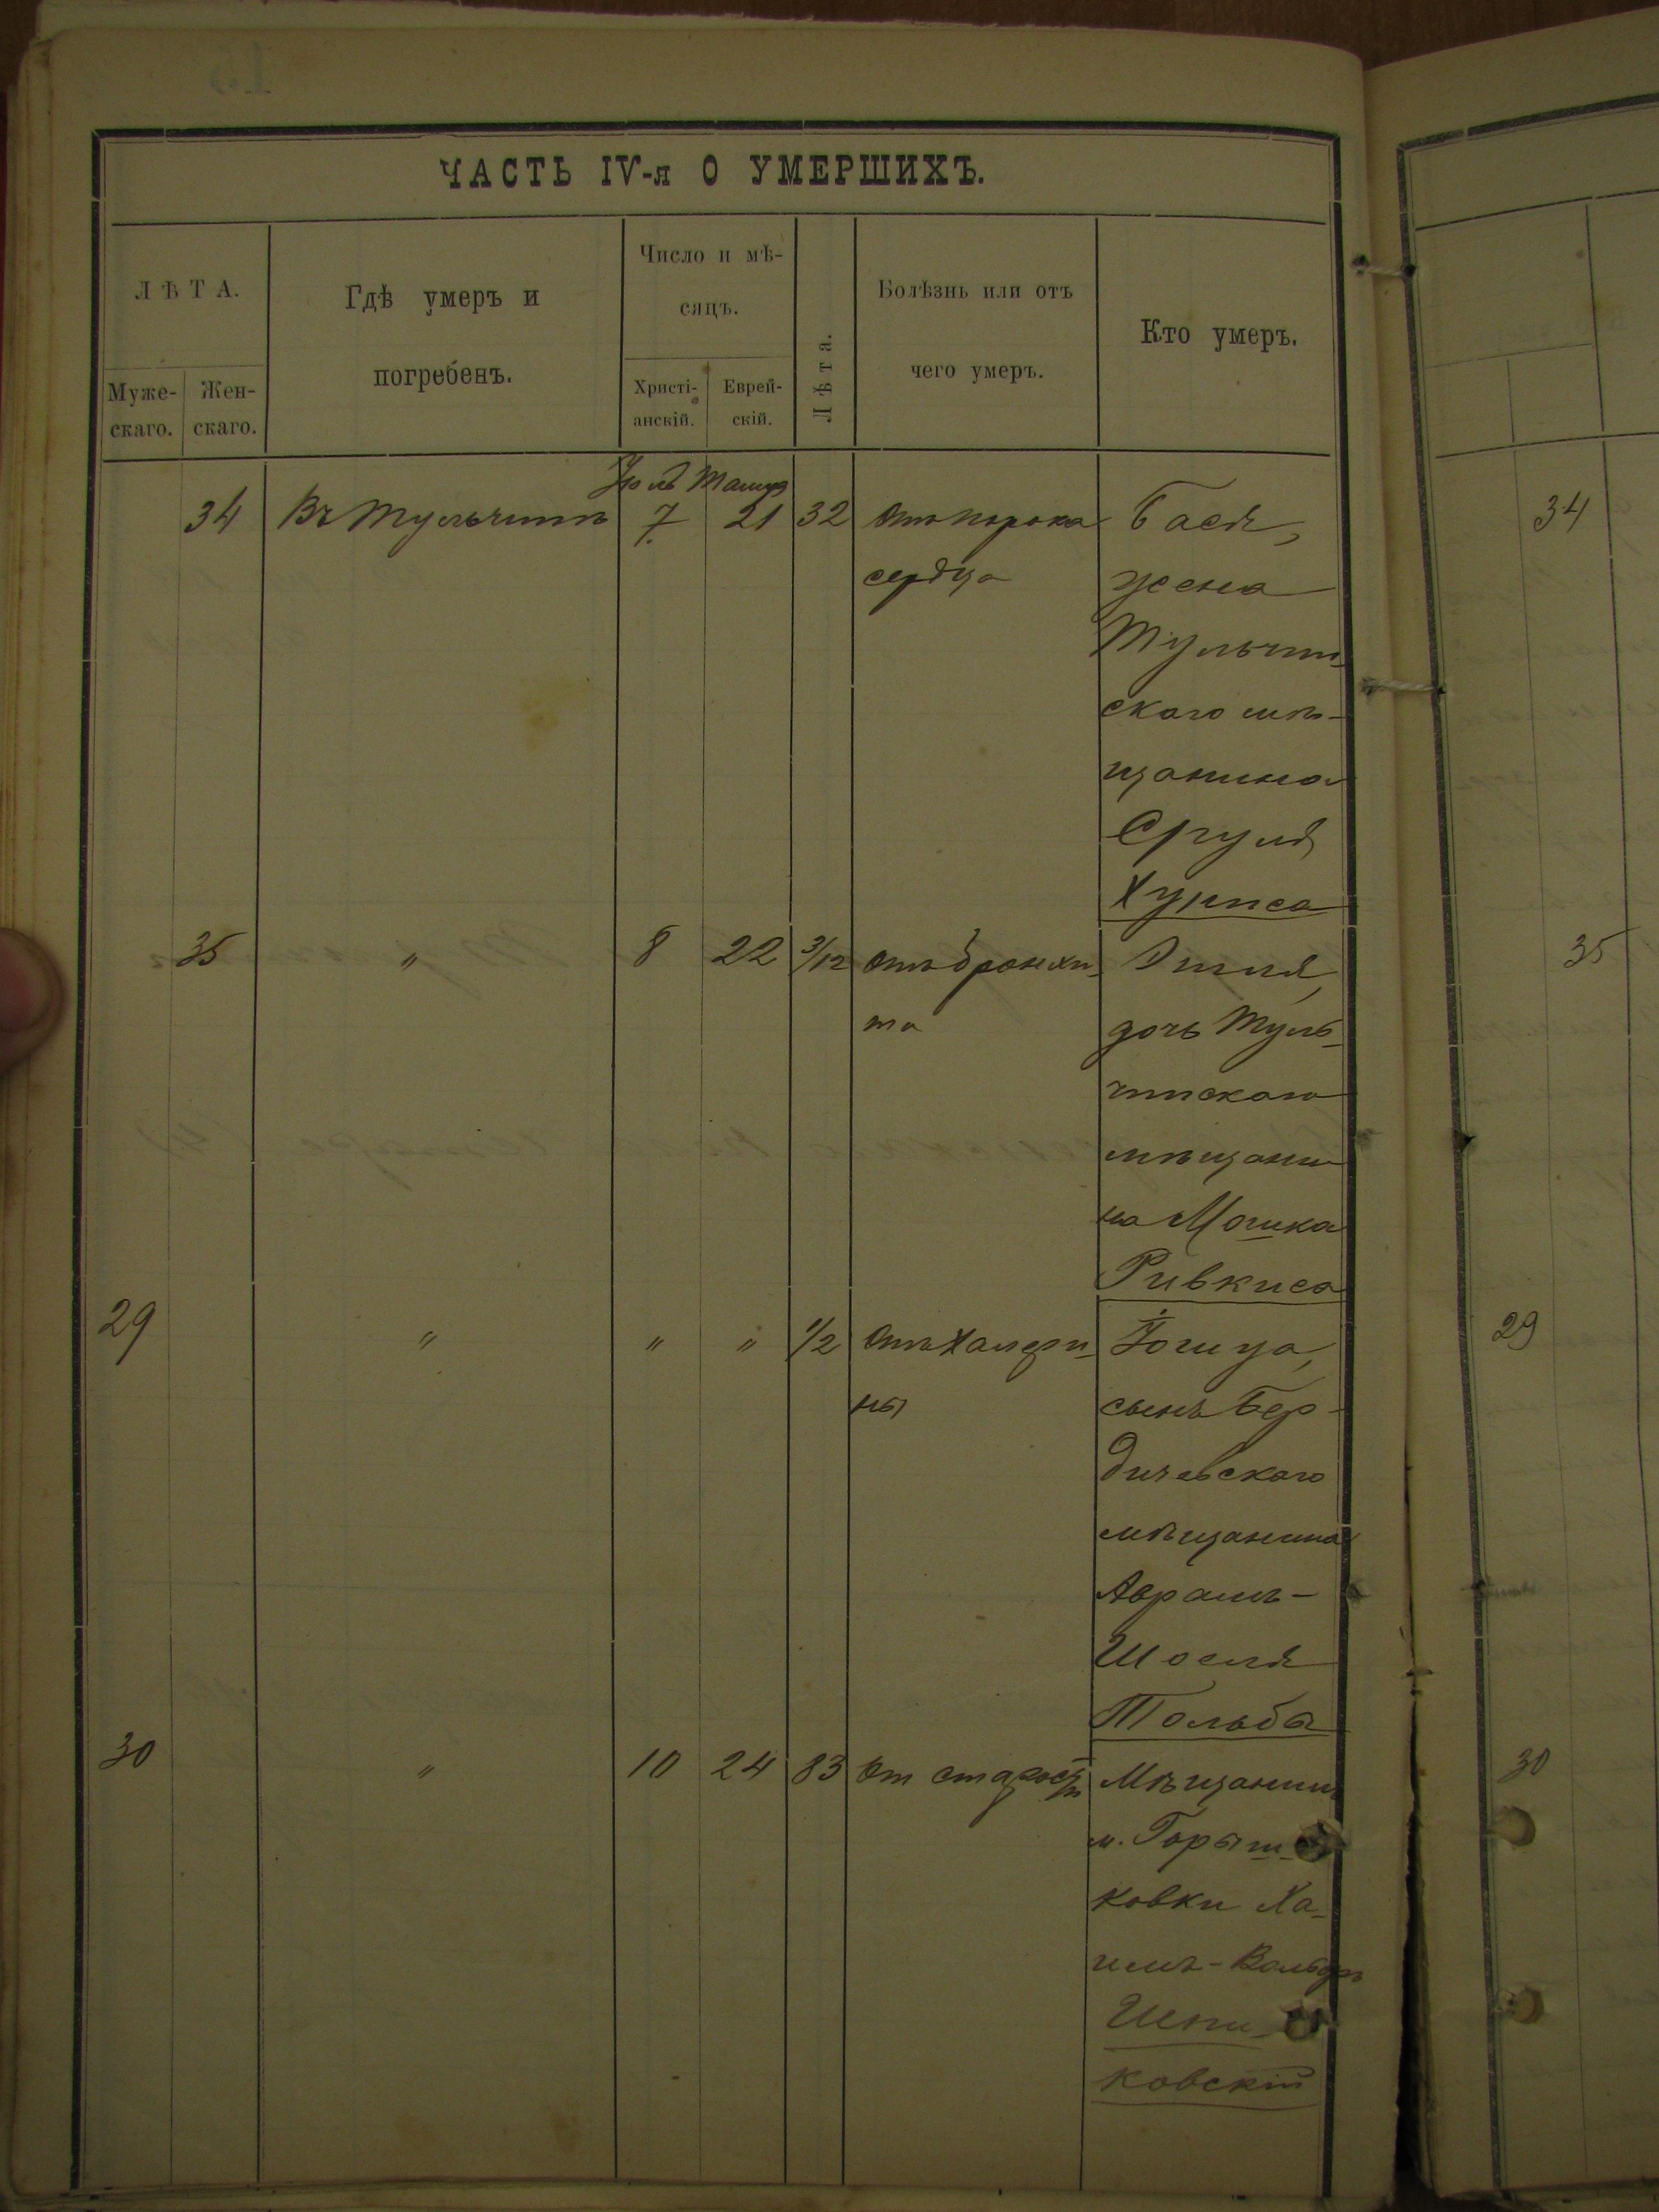 ЧАСТЬ IV-я О УМЕРШИХЪ.
ЛѢТА.
Муже-
скаго.
Жен-
скаго.
Гдѣ умеръ и
погребенъ.
Число и мѣ-
сяцъ.
Христі-
анскій.
Еврей-
скій.
Лѣта.
Болѣзнь или отъ
чего умеръ.
Кто умеръ.
Іюль Тамуз
34 Въ Тульчинѣ 7 21 32 Отъ порока Бася,
сердца жена
Тульчин-
скаго мѣ-
щанина
Сруля
Хуписа
35 " 8 22 3/12 Отъ бронхи- Этля,
та дочь Туль-
чинскаго
мѣщани
на Мошка
Ривкиса
29 " " " 1/2 Отъ холери- Іошуа,
ны сынъ Бер-
дичевскаго
мѣщанина
Аврамъ-
Іосля
Тольбы
30 " 10 24 83 От старости Мѣщанинъ
м. Горыш-
ковки Ха-
имъ-Вольфъ
Шпи-
ковскій
34
35
29
30